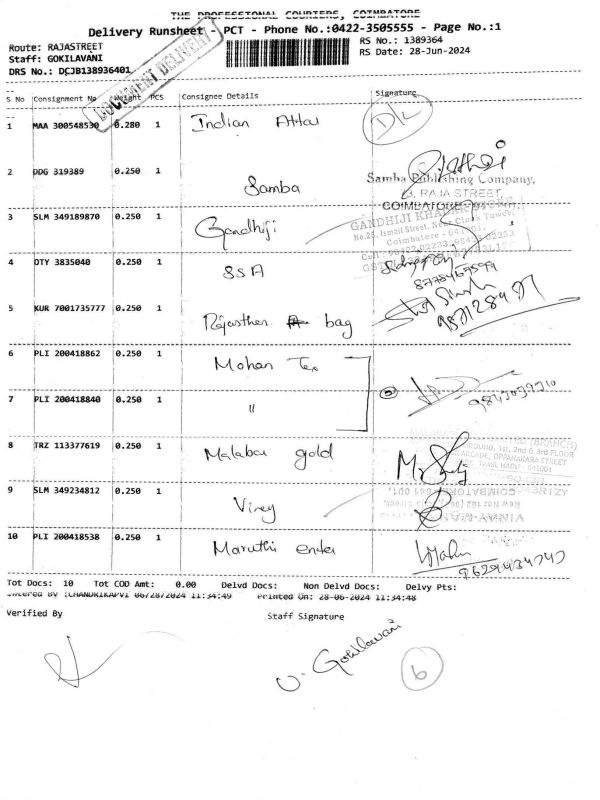 THE PROFESSIONAL COURIERS, COIMBATORE
Delivery Runsheet - PCT - Phone No.:0422-3505555 - Page No.:1
Route: RAJASTREET
RS No.: 1389364
Staff: GOKILAVANI
RS Date: 28-Jun-2024
DRS No.: DCJB138936401
DOCUMENT DELIVERY
S No Consignment No Weight PCS Consignee Details Signature
1 MAA 300548530 0.280 1 Indian Attar
2 DDG 319389 0.250 1 Samba
Samba Publishing Company,
73, RAJA STREET,
COIMBATORE
3 SLM 349189870 0.250 1 Gandhiji
GANDHIJI KHADI
No.26, Ismail Street, Near Clock Tower,
Coimbatore - 641 001.
4 OTY 3835040 0.250 1 SSA
5 KUR 7001735777 0.250 1 Rajasthan bag
6 PLI 200418862 0.250 1 Mohan Tex
7 PLI 200418840 0.250 1 "
8 TRZ 113377619 0.250 1 Malabar gold
GROUND, 1st, 2nd & 3rd FLOOR
ARCADE, OPPANAKARA STREET
TAMIL NADU - 641001
9 SLM 349234812 0.250 1 Vinay
COIMBATORE - 641 001.
10 PLI 200418538 0.250 1 Maruthi enter
Tot Docs: 10 Tot COD Amt: 0.00 Delvd Docs: Non Delvd Docs: Delvy Pts:
Entered By :CHANDRIKAPVT 06/28/2024 11:34:49 Printed On: 28-06-2024 11:34:48
Verified By Staff Signature
V. Gokilavani
6